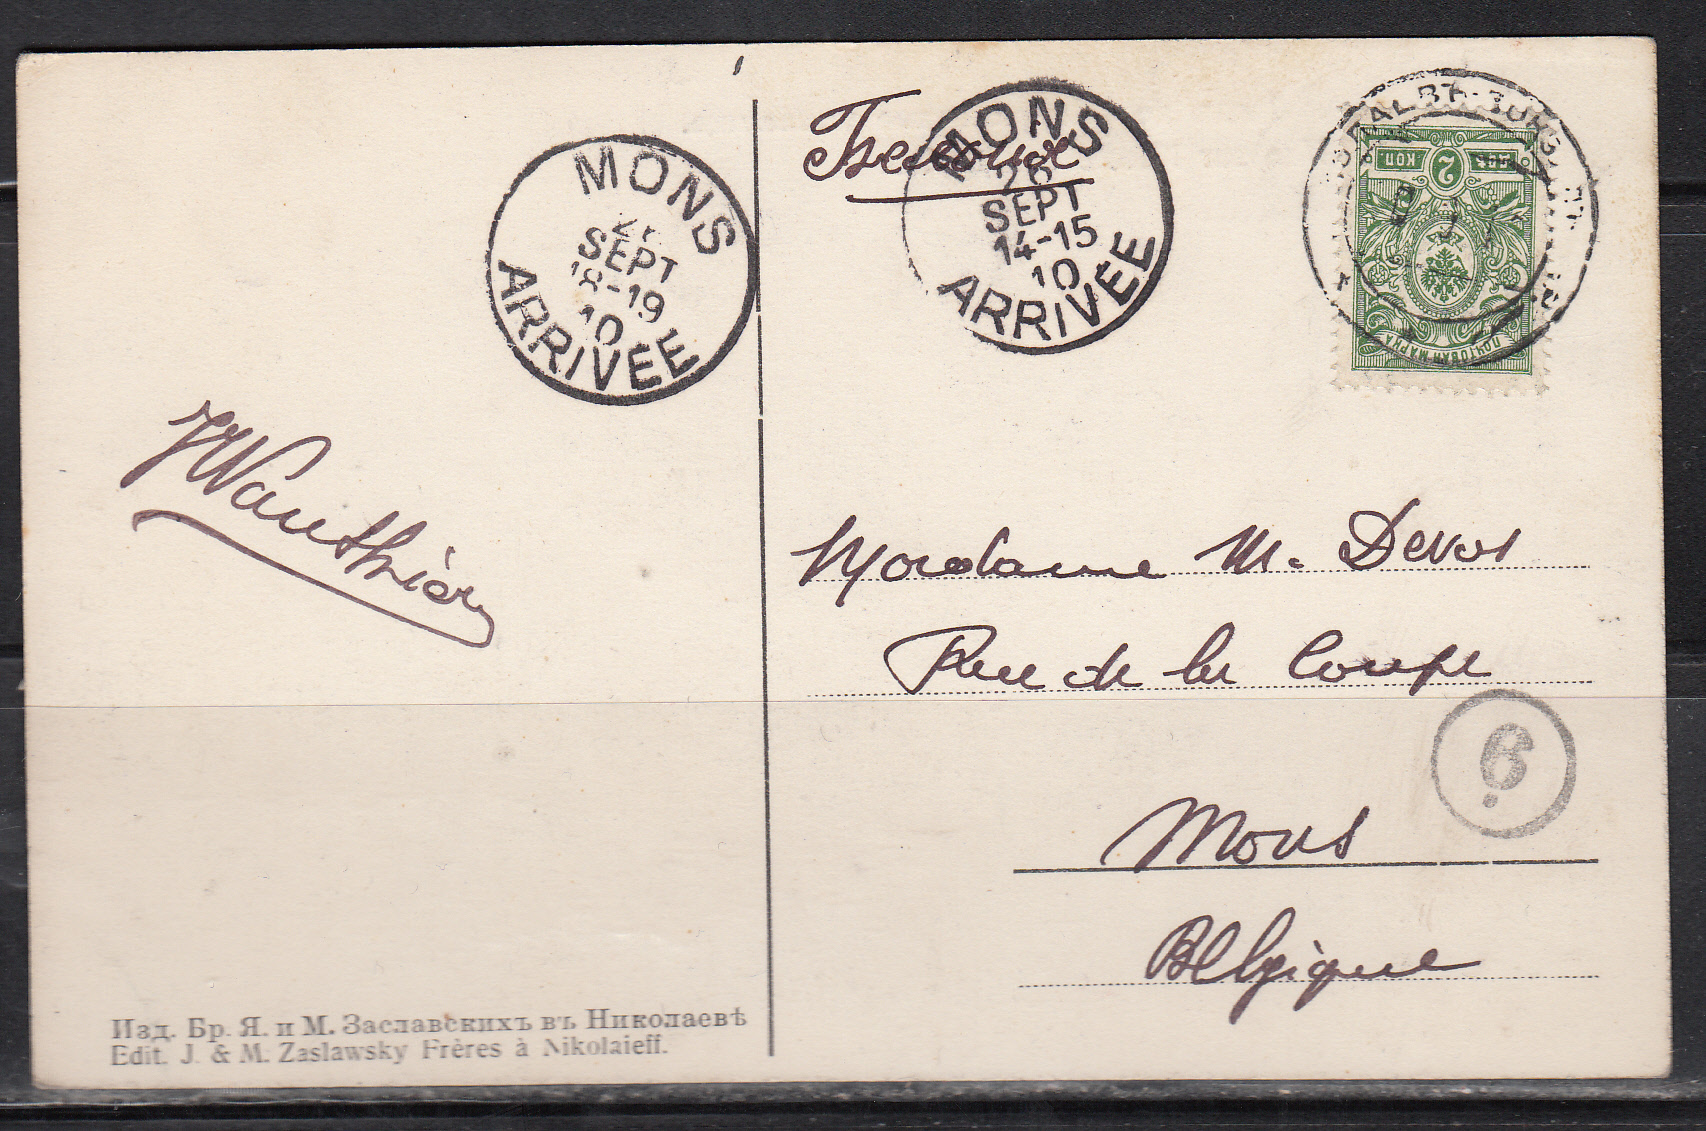 MONS
SEPT
18-19
10
ARRIVÉE
Бельгия
MONS
26
SEPT
14-15
10
ARRIVÉE
КОП. 2 КОП.
ПОЧТОВАЯ МАРКА
JWauthier
Madame M. Devos
Rue de la Coupe
6
Mons
Belgique
Изд. Бр. Я. и М. Заславскихъ въ Николаевѣ
Edit. J. & M. Zaslawsky Frères à Nikolaieff.